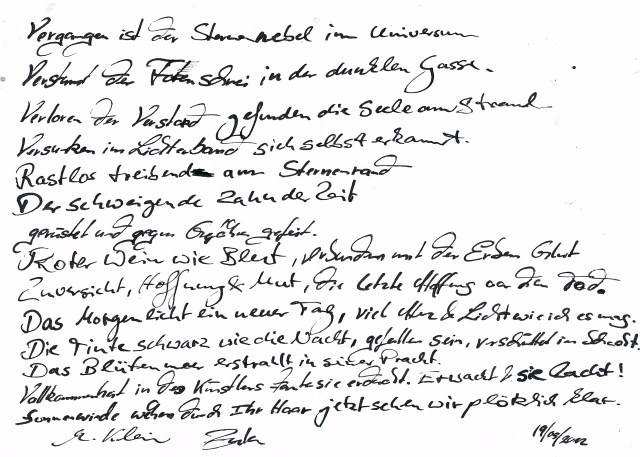 Vergangen ist der Sternennebel im Universum
Verstummt der Totenschrei in der dunklen Gasse.
Verloren der Verstand gefunden die Seele am Strand
Versunken im Lichterband sich selbst erkannt.
Rastlos treibend am Sternenrand
Der schweigende Zahn der Zeit
gerüstet und gegen gefeit.
Roter Wein wie Blut, verbunden mit der Erden Glut
Zuversicht, Hoffnung & Mut, die letzte Hoffnung vor dem Tod.
Das Morgenlicht ein neuer Tag, viel Herz & Licht wie ich es mag.
Die Tinte schwarz wie die Nacht, gefallen sein, verschüttet im Schacht.
Das Blütenmeer erstrahlt in seiner Pracht.
Vollkommenheit in des Künstlers Fantasie erdacht. Erwacht & sie lacht!
Sonnenwinde wehen durch Ihr Haar jetzt sehen wir plötzlich klar.
Klein
19/05/2012